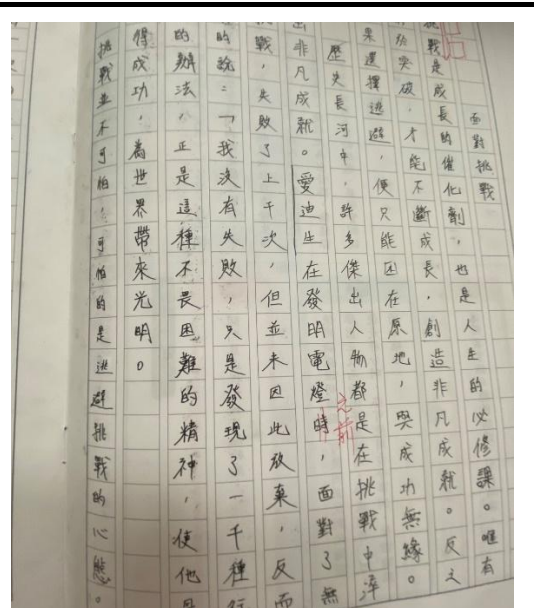 面對挑戰
挑戰是成長的催化劑，也是人生的必修課。唯有
突破，才能不斷成長，創造非凡成就。反之
果選擇逃避，便只能困在原地，與成功無緣。
歷史長河中，許多傑出人物都是在挑戰中淬
出非凡成就。愛迪生在發明電燈時，面對了無
之前
戰，失敗了上千次，但並未因此放棄，反而
的說：「我沒有失敗，只是發現了一千種行
的辦法」，正是這種不畏困難的精神，使他
得成功，為世界帶來光明。
挑戰並不可怕，可怕的是逃避挑戰的心態。